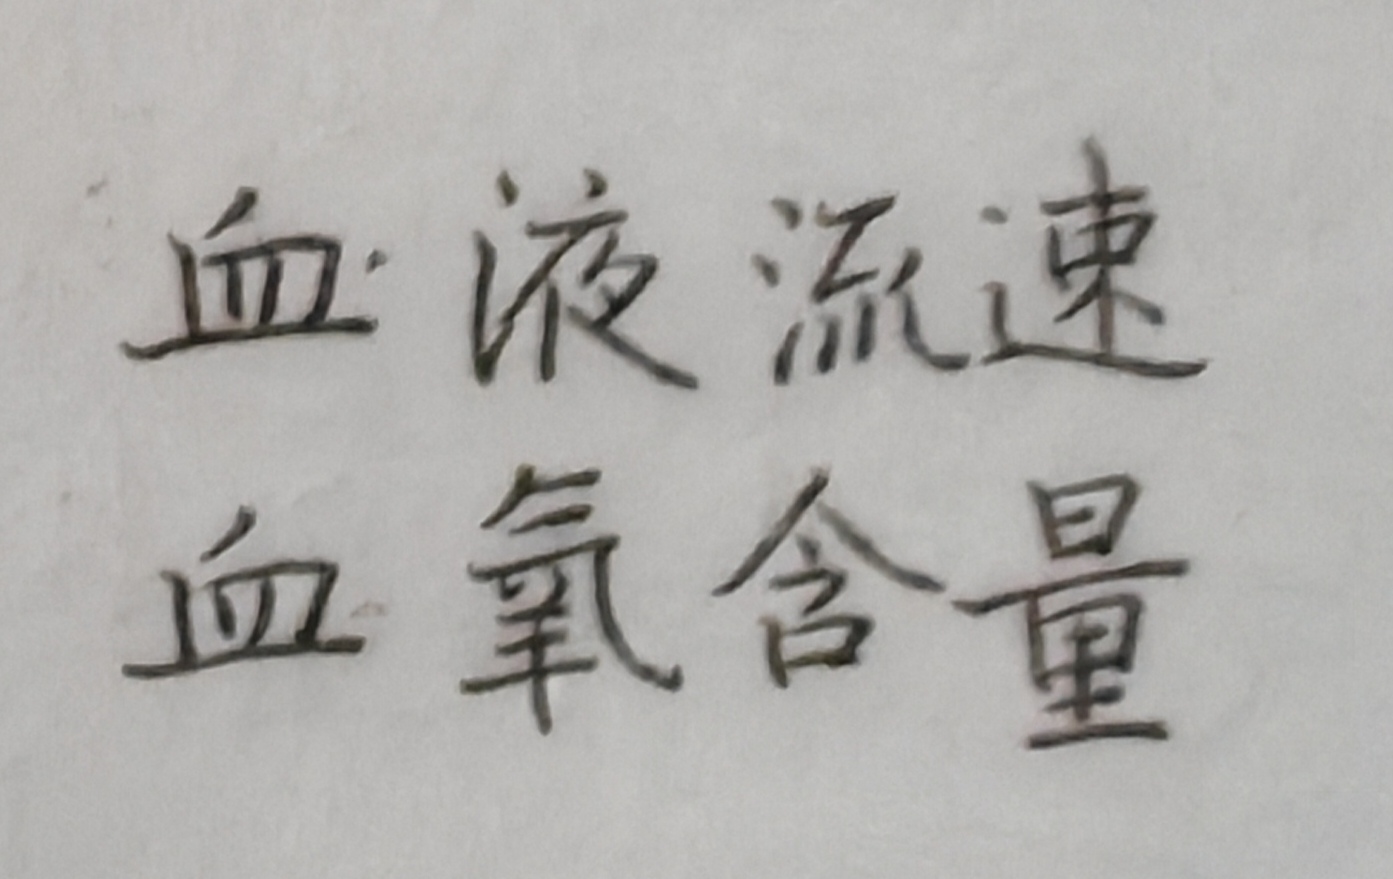 血液流速
血氧含量